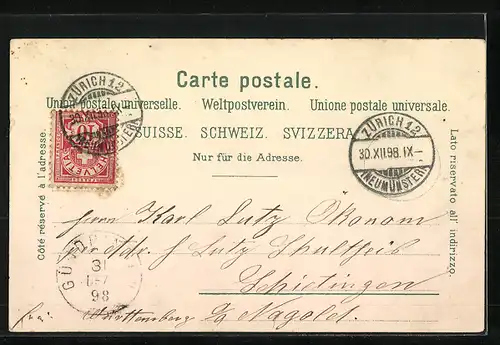 Carte postale.
Union postale universelle. Weltpostverein. Unione postale universale.
SUISSE. SCHWEIZ. SVIZZERA
Nur für die Adresse.
Côté réservé à l'adresse.
Lato riservato all' indirizzo.
ZÜRICH 12
30.XII.98.IX-
(NEUMÜNSTER)
ZÜRICH 12
30.XII.98.IX-
(NEUMÜNSTER)
10
HELVETIA
31
DEZ
98
Herrn Karl Lutz Ökonom
Lutz Schultheiß
Schietingen
Württemberg Nagold.